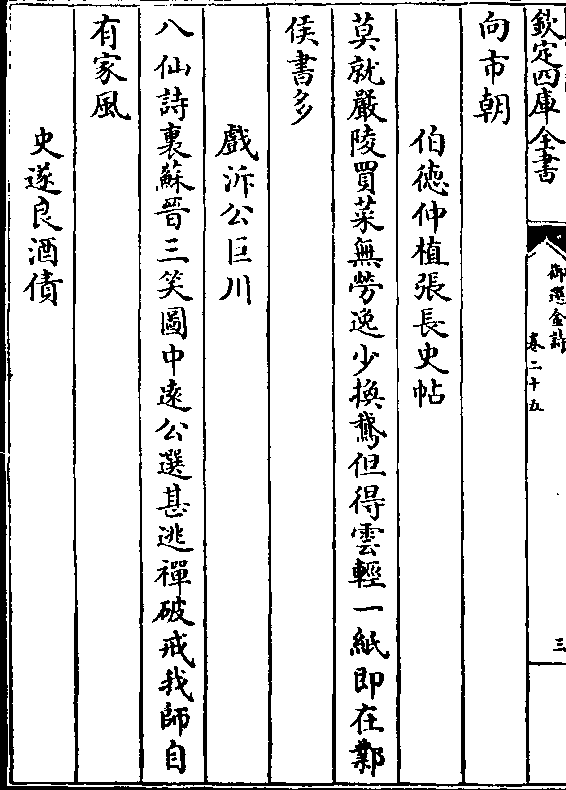 欽定四庫全書
御選金詩
卷二十五
三
向市朝
伯德仲植張長史帖
莫就嚴陵買菜無勞逸少換鵞但得雲輕一紙即在鄴
侯書多
戲泝公巨川
八仙詩裏蘇晉三笑圖中遠公選甚逃禪破戒我師自
有家風
史遂良酒債